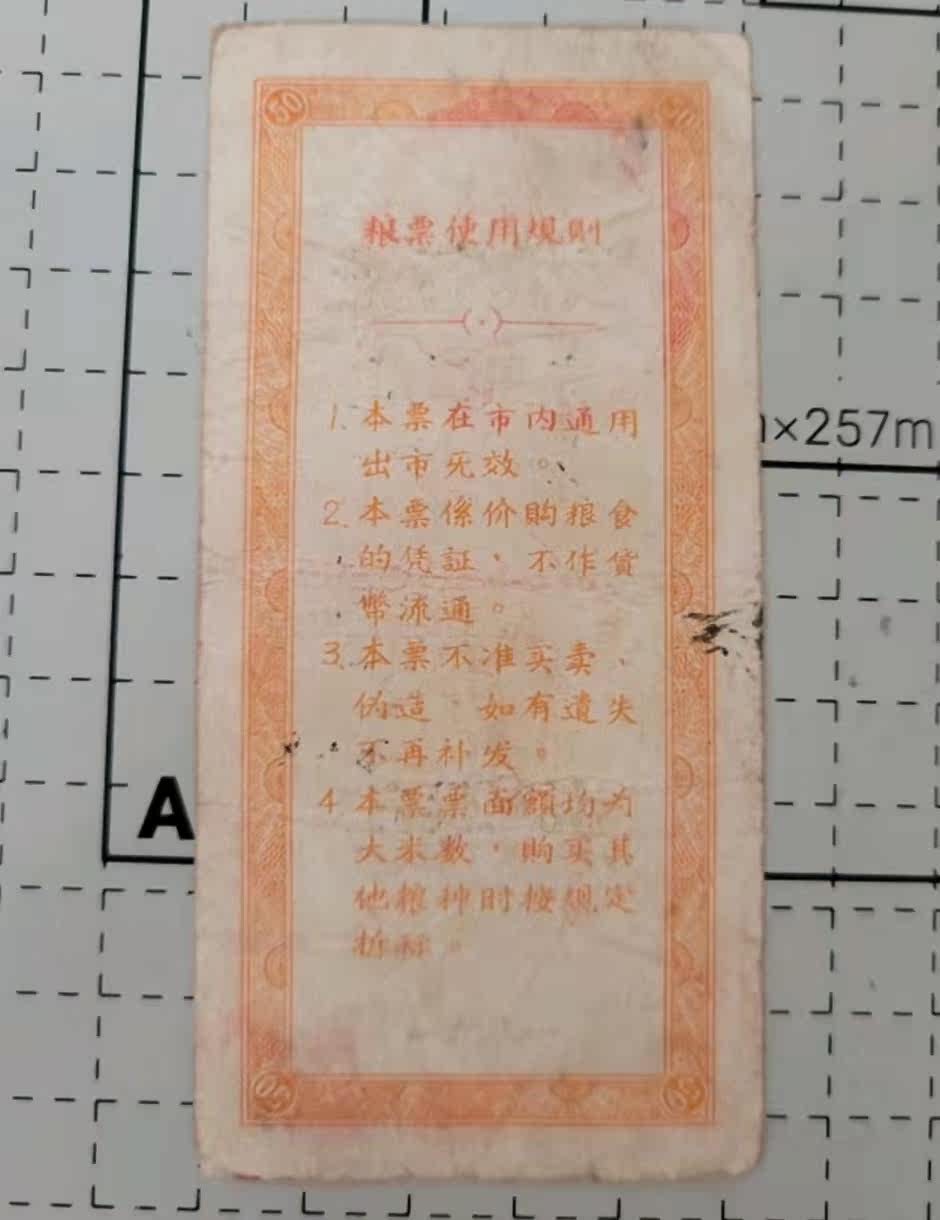 50
粮票使用规则
1. 本票在市内通用
出市无效。
2. 本票係价购粮食
的凭証，不作貨
幣流通。
3. 本票不准买卖、
伪造 如有遺失
不再补发。
4 本票票面額均为
大米数，购买其
他粮种时按规定
折称。
50
50
×257m
A